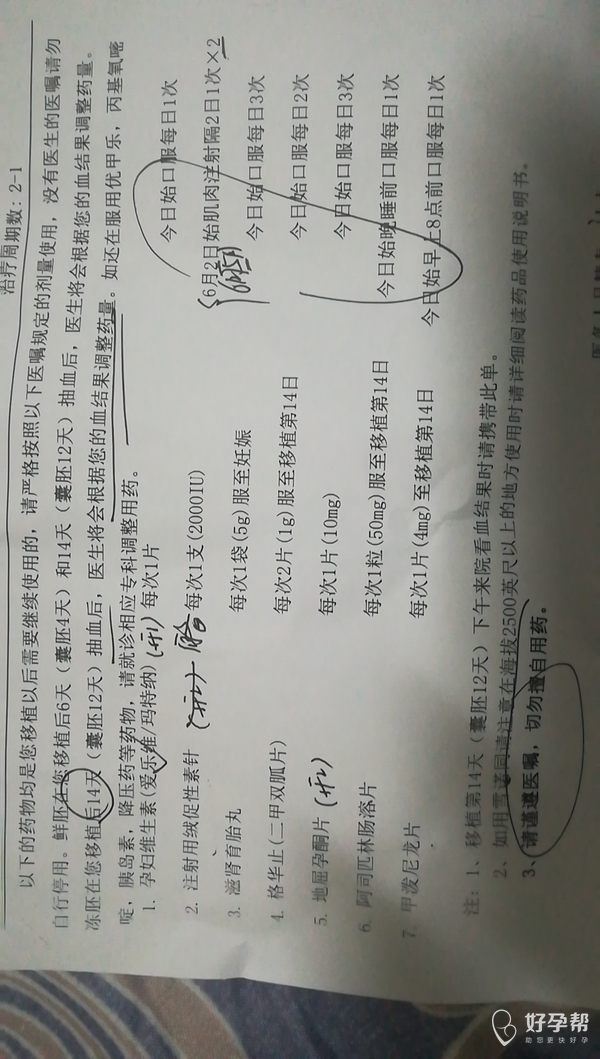 治疗周期数: 2-1
以下的药物均是您移植以后需要继续使用的，请严格按照以下医嘱规定的剂量使用，没有医生的医嘱请勿
自行停用。鲜胚在您移植后6天（囊胚4天）和14天（囊胚12天）抽血后，医生将会根据您的血结果调整药量。
冻胚在您移植后14天（囊胚12天）抽血后，医生将会根据您的血结果调整药量。如还在服用优甲乐，丙基氧嘧
啶，胰岛素，降压药等药物，请就诊相应专科调整用药。
1. 孕妇维生素(爱乐维/玛特纳) 每次1片 今日始口服每日1次
2. 注射用绒促性素针 每次1支(2000IU) 6月2日始肌肉注射隔2日1次×2
3. 滋肾育胎丸 每次1袋(5g)服至妊娠 今日始口服每日3次
4. 格华止(二甲双胍片) 每次2片(1g)服至移植第14日 今日始口服每日2次
5. 地屈孕酮片 每次1片(10mg) 今日始口服每日3次
6. 阿司匹林肠溶片 每次1粒(50mg)服至移植第14日 今日始晚睡前口服每日1次
7. 甲泼尼龙片 每次1片(4mg)至移植第14日 今日始早上8点前口服每日1次
注: 1、移植第14天（囊胚12天）下午来院看血结果时请携带此单。
2、如用雪诺同请注意在海拔2500英尺以上的地方使用时请详细阅读药品使用说明书。
3、请谨遵医嘱，切勿擅自用药。
好孕帮
助您更快好孕